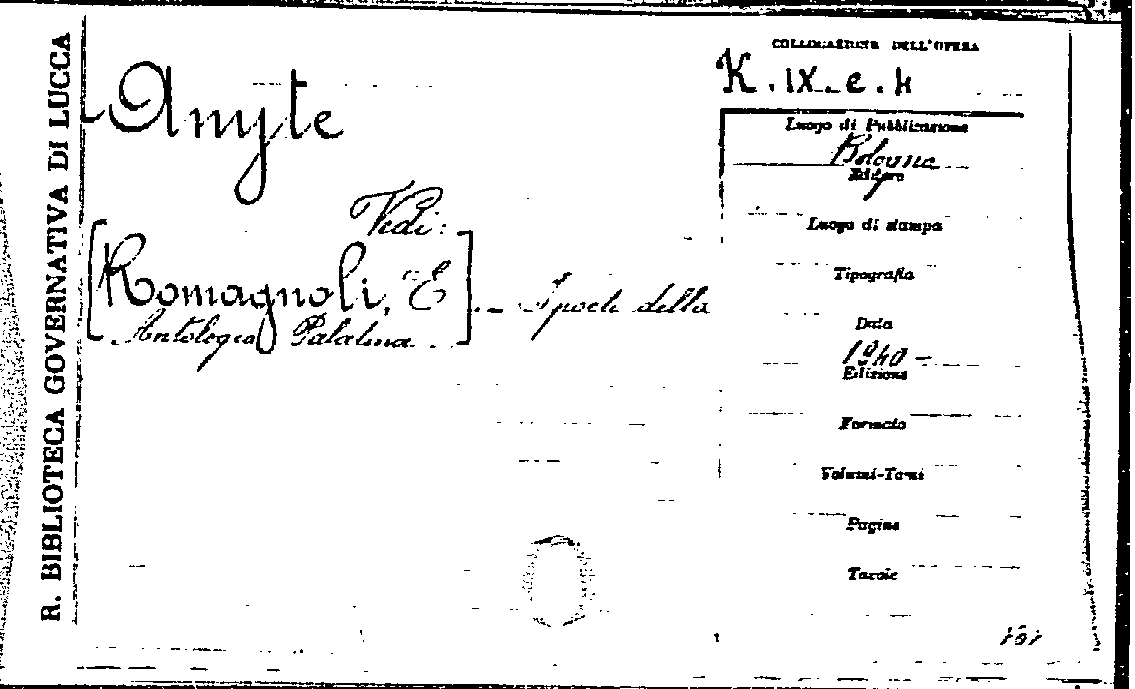 R. BIBLIOTECA GOVERNATIVA DI LUCCA
Anyte
Vedi:
[Romagnoli, E]. - I poeti della
Antologia Palatina
COLLOCAZIONE DELL'OPERA
K. IX. e. 4
Luogo di Pubblicazione
Bologna
Editore
Luogo di stampa
Tipografia
Data
1940 -
Edizione
Formato
Volumi-Tomi
Pagine
Tavole